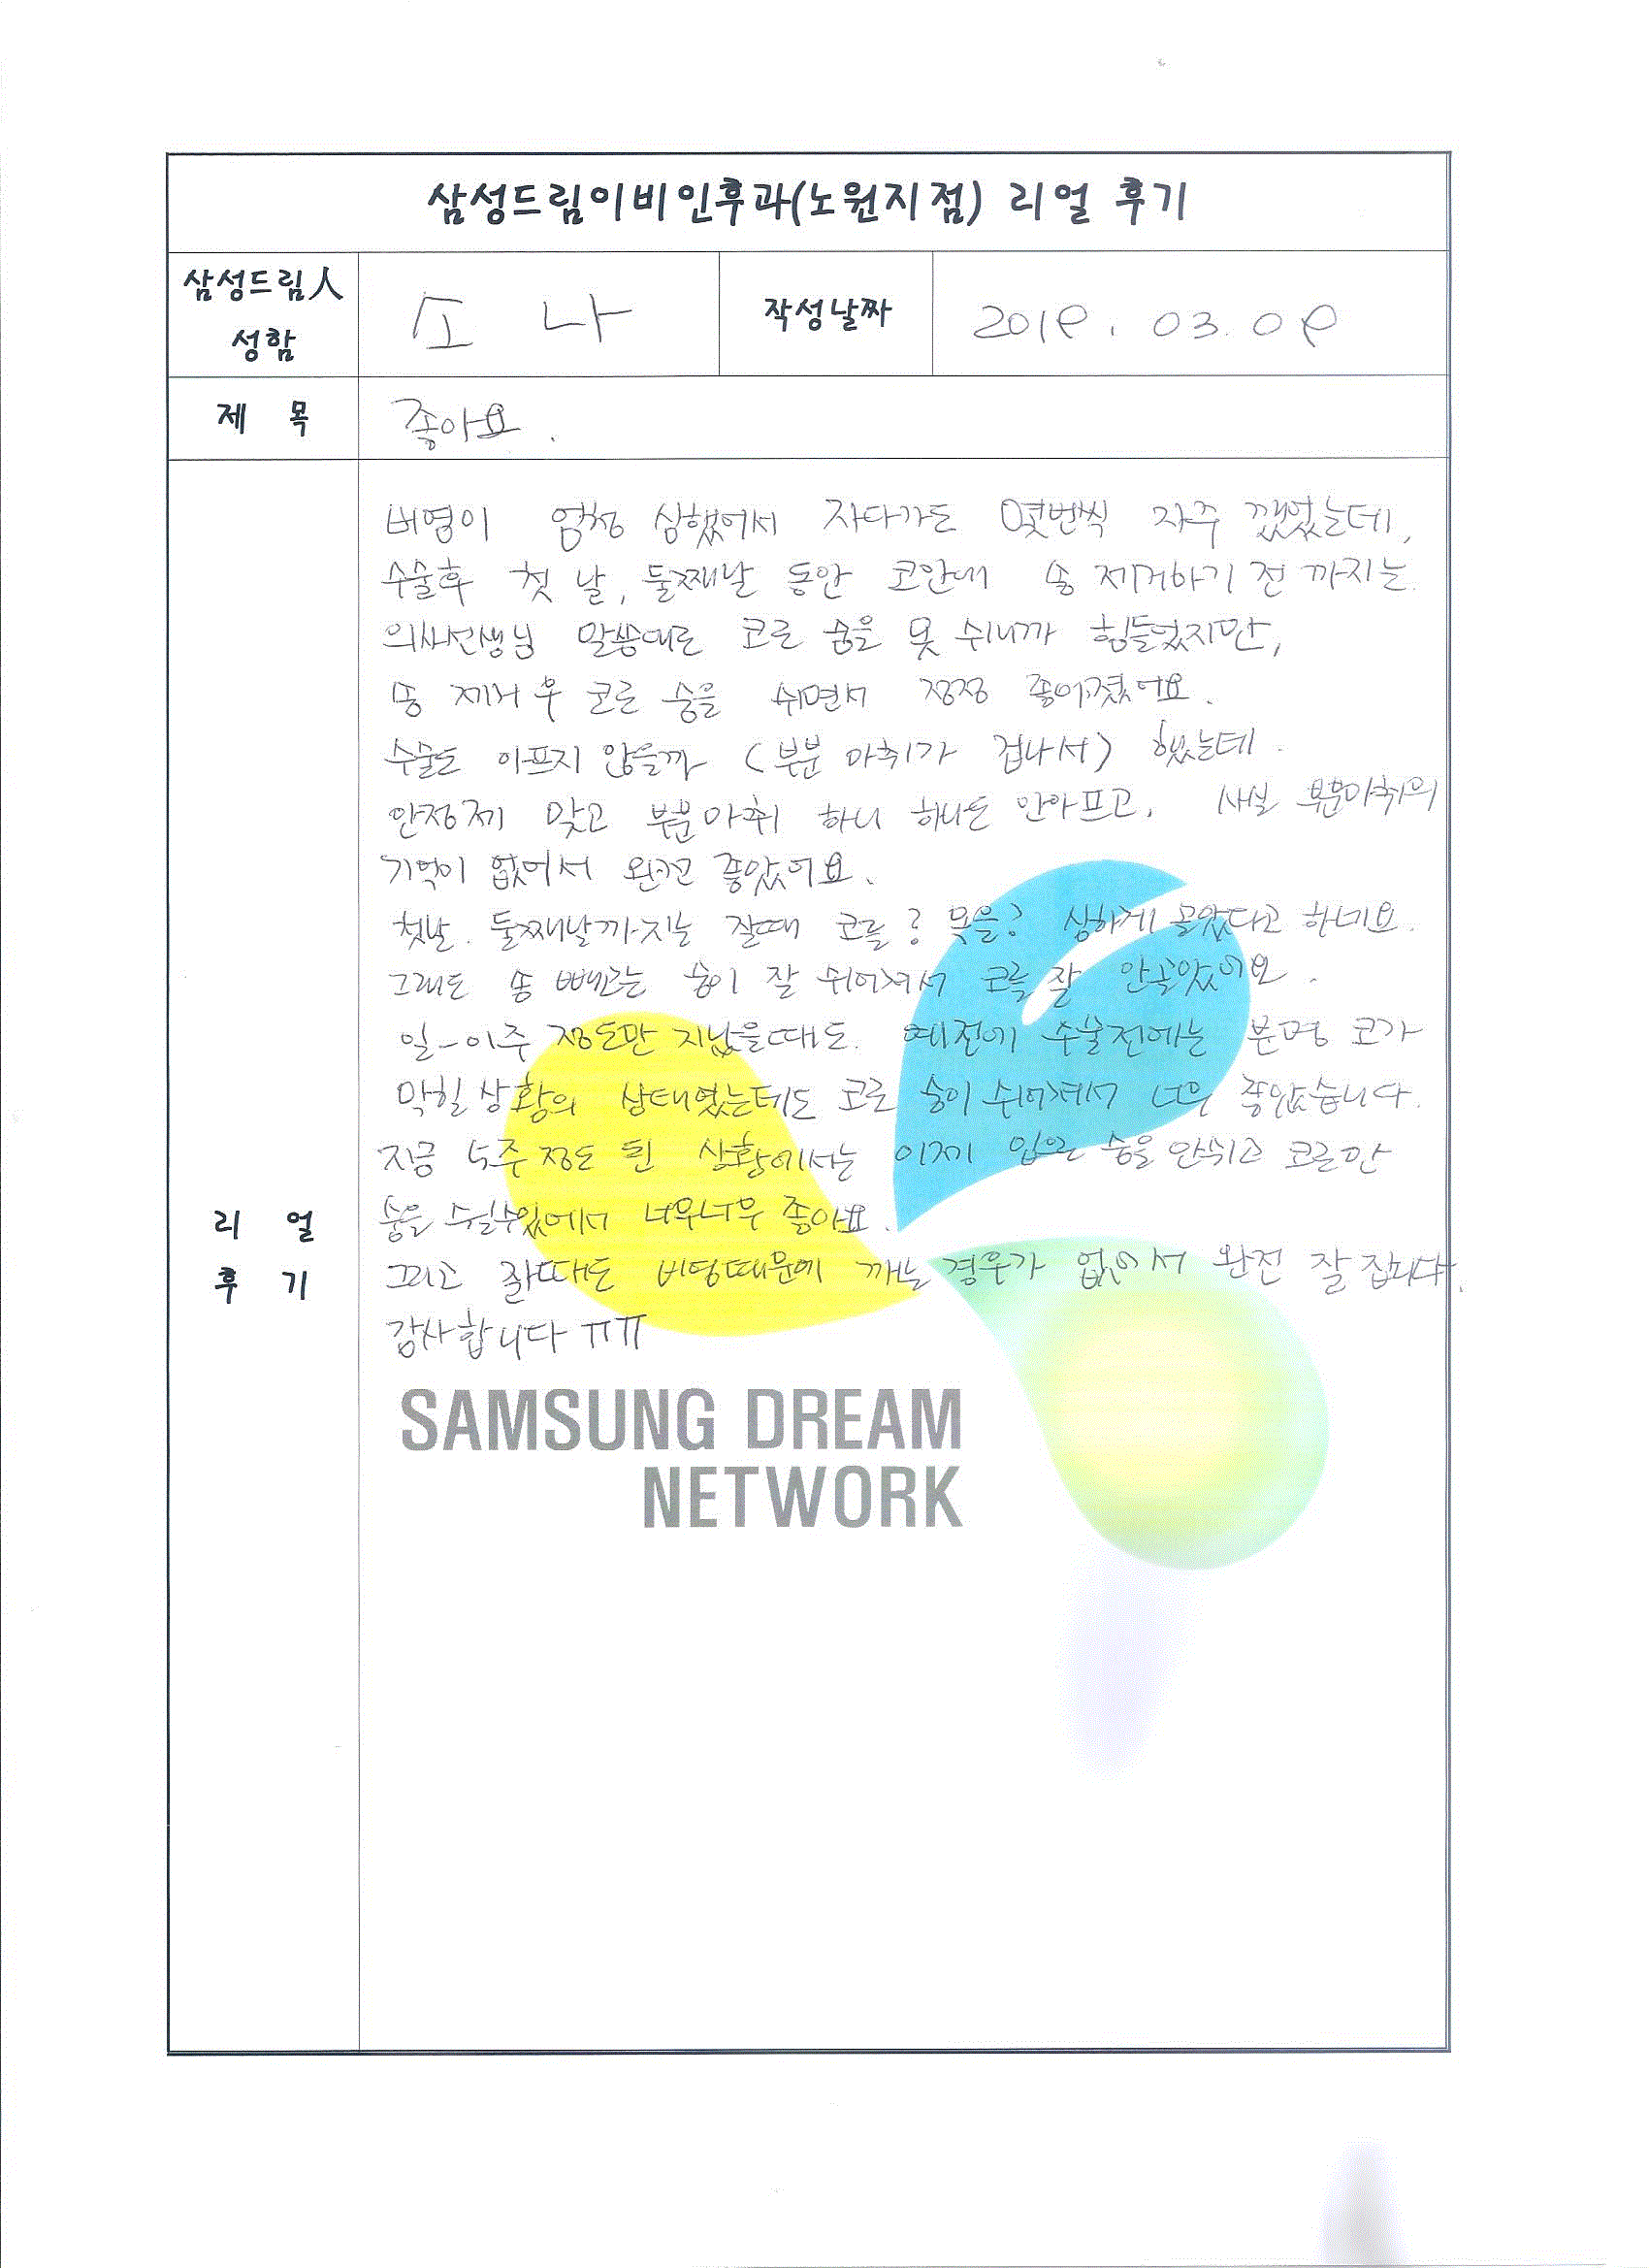 삼성드림이비인후과(노원지점) 리얼 후기
삼성드림人 성함
소 나
작성날짜
2019. 03. 09
제 목
좋아요.
비염이 엄청 심했어서 자다가도 몇번씩 자주 깼었는데,
수술후 첫 날, 둘째날 동안 코안에 솜 제거하기 전 까지는
의사선생님 말씀대로 코로 숨을 못 쉬니까 힘들었지만,
솜 제거 후 코로 숨을 쉬면서 점점 좋아졌어요.
수술도 아프지 않을까 (부분 마취가 겁나서) 했는데.
안정제 맞고 부분마취 하니 하나도 안아프고, 사실 부분마취의
기억이 없어서 완전 좋았어요.
첫날. 둘째날까지는 잘때 코를? 목을? 심하게 골았다고 하네요.
그래도 솜 빼고는 숨이 잘 쉬어져서 코를 잘 안골았어요.
일-이주 정도만 지났을때도. 예전에 수술전에는 분명 코가
막힐 상황의 상태였는데도 코로 숨이 쉬어져서 너무 좋았습니다.
지금 5주 정도 된 상황에서는 이제 입으로 숨을 안쉬고 코로만
숨을 쉴수있어서 너무너무 좋아요.
그리고 잘때도 비염때문에 깨는 경우가 없어서 완전 잘 잡니다.
감사합니다 ㅠㅠ
리 얼
후 기
SAMSUNG DREAM
NETWORK